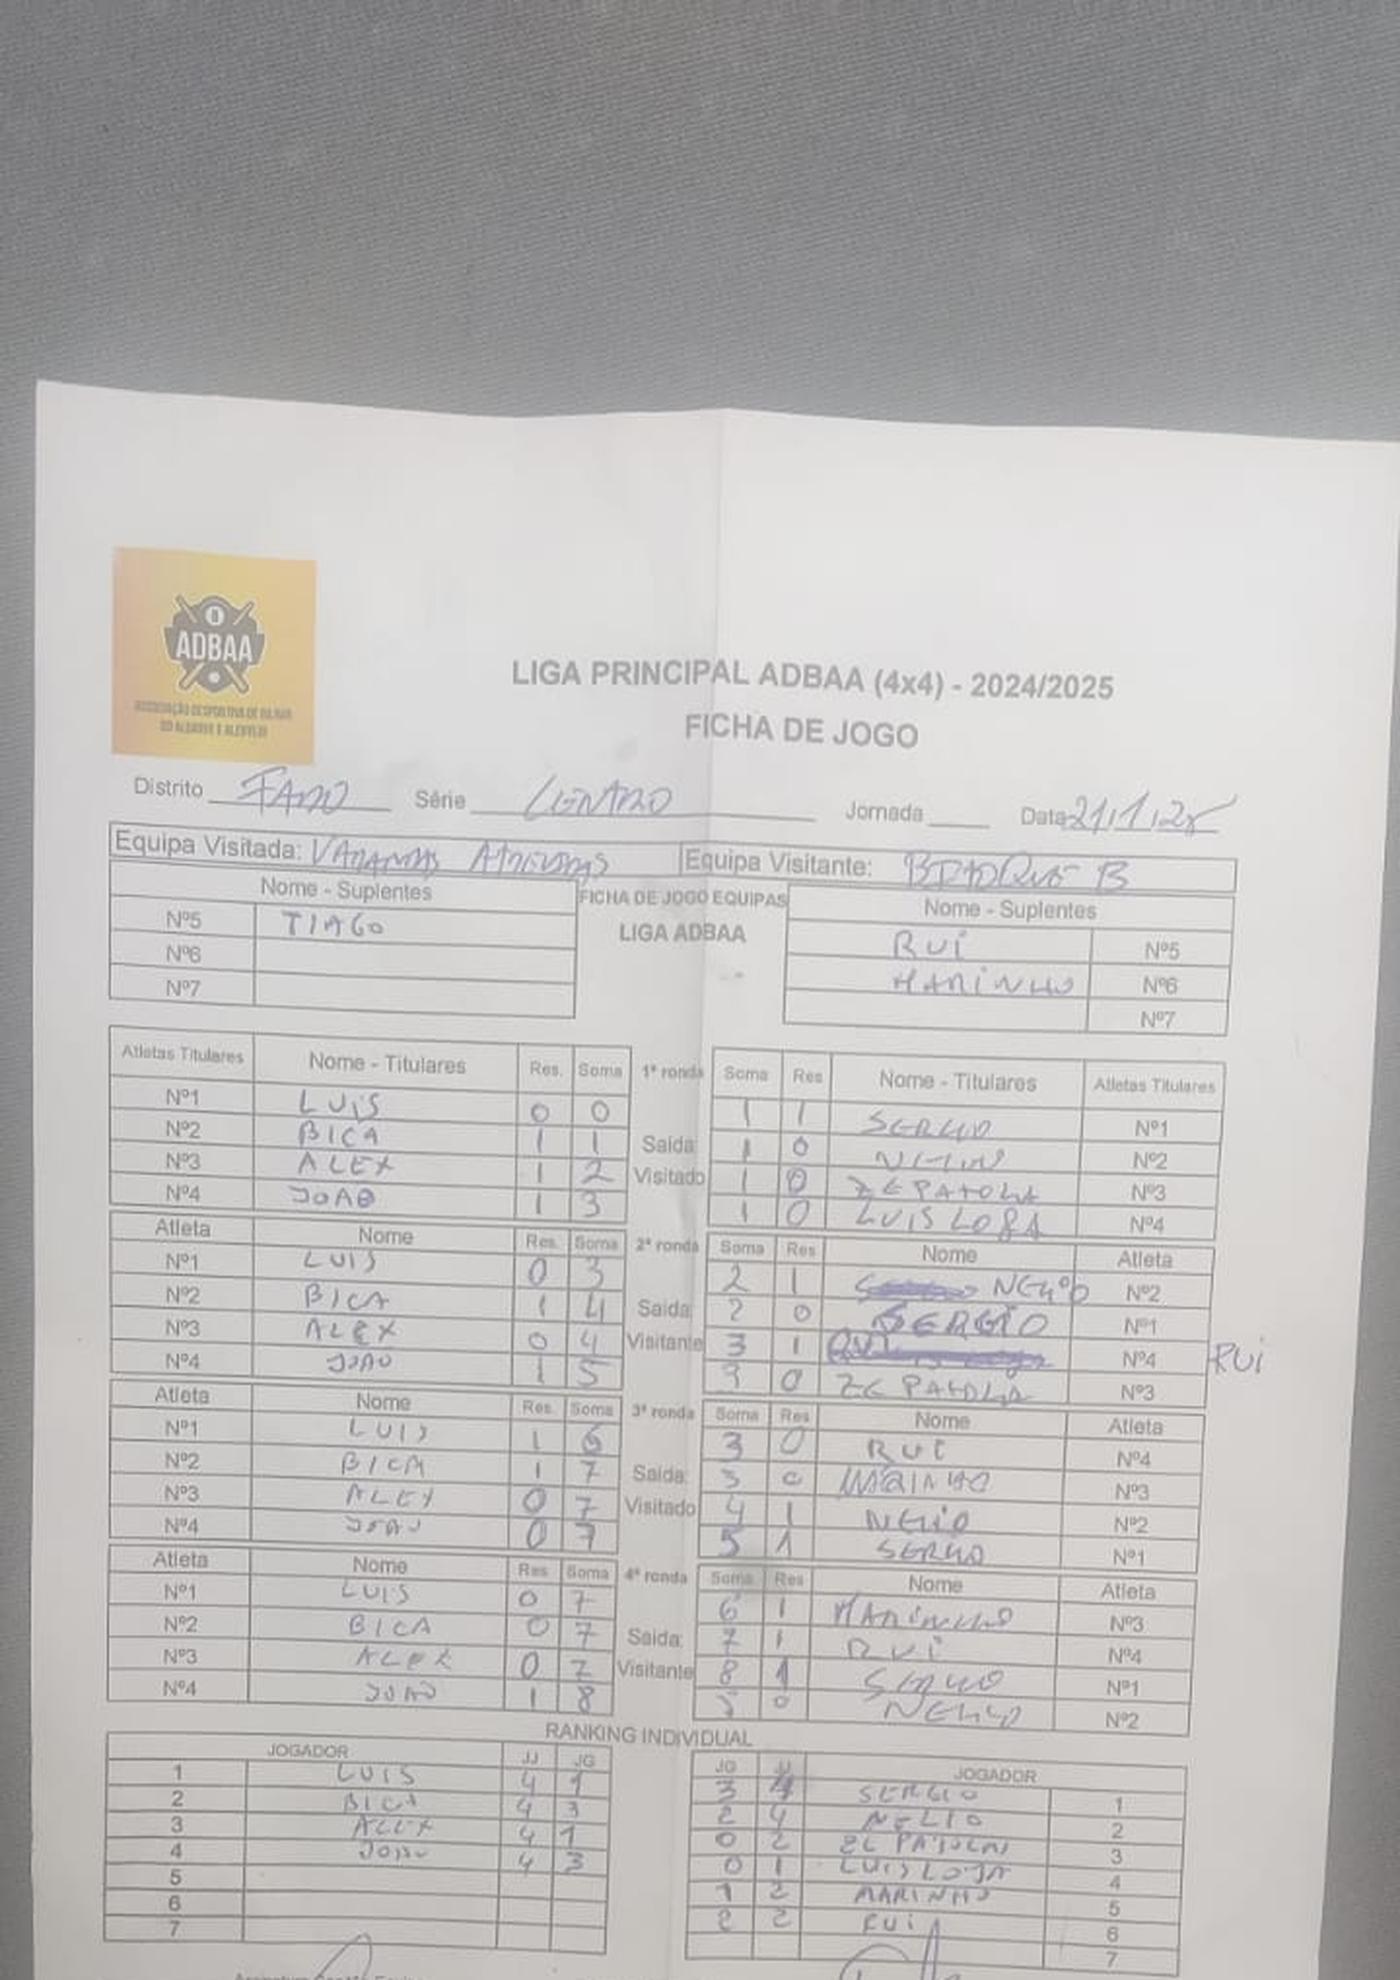 ADBAA
ASSOCIAÇÃO DESPORTIVA DE BILHAR
DO ALGARVE E ALENTEJO
LIGA PRINCIPAL ADBAA (4x4) - 2024/2025
FICHA DE JOGO
Distrito FARO Série CENTRO Jornada ____ Data 21/1/25
Equipa Visitada: Equipa Visitante: B
Nome - Suplentes FICHA DE JOGO EQUIPAS Nome - Suplentes
Nº5 TIAGO LIGA ADBAA RUI Nº5
Nº6 MARINHO Nº6
Nº7 Nº7
Atletas Titulares Nome - Titulares Res. Soma 1ª ronda Soma Res Nome - Titulares Atletas Titulares
Nº1 LUIS 0 0 1 1 SERGIO Nº1
Nº2 BICA 1 1 Saida: 1 0 NELIO Nº2
Nº3 ALEX 1 2 Visitado 1 0 ZE PATOLA Nº3
Nº4 JOAO 1 3 1 0 LUIS LOJA Nº4
Atleta Nome Res. Soma 2ª ronda Soma Res Nome Atleta
Nº1 LUIS 0 3 2 1 NELIO Nº2
Nº2 BICA 1 4 Saida: 2 0 SERGIO Nº1
Nº3 ALEX 0 4 Visitante 3 1 Nº4 RUI
Nº4 JOAO 1 5 3 0 ZE PATOLA Nº3
Atleta Nome Res. Soma 3ª ronda Soma Res Nome Atleta
Nº1 LUIS 1 6 3 0 RUI Nº4
Nº2 BICA 1 7 Saida: 3 0 MARINHO Nº3
Nº3 ALEX 0 7 Visitado 4 1 NELIO Nº2
Nº4 JOAO 0 7 5 1 SERGIO Nº1
Atleta Nome Res Soma 4ª ronda Soma Res Nome Atleta
Nº1 LUIS 0 7 6 1 MARINHO Nº3
Nº2 BICA 0 7 Saida: 7 1 RUI Nº4
Nº3 ALEX 0 7 Visitante 8 1 SERGIO Nº1
Nº4 JOAO 1 8 0 NELIO Nº2
RANKING INDIVIDUAL
JOGADOR JJ JG JG JJ JOGADOR
1 LUIS 4 1 3 4 SERGIO 1
2 BICA 4 3 2 4 NELIO 2
3 ALEX 4 1 0 2 ZE PATOLA 3
4 JOAO 4 3 0 1 LUIS LOJA 4
5 1 2 MARINHO 5
6 2 2 RUI 6
7 7